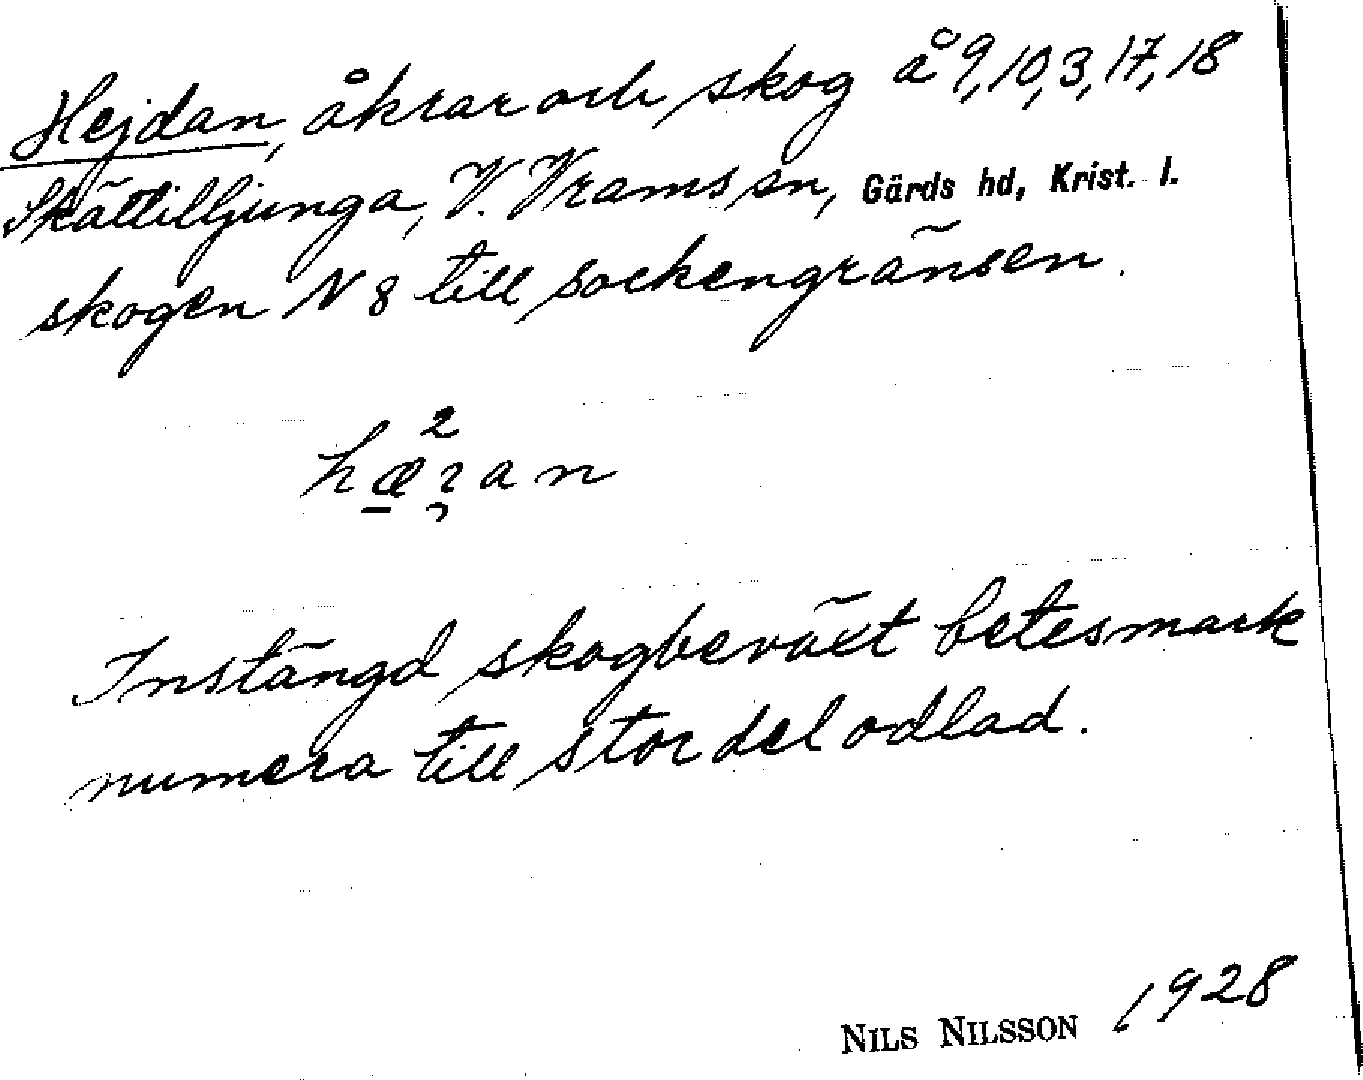 Hejdan, åkrar och skog å 9, 10, 3, 17, 18
Skättilljunga, V. Vrams sn, Gärds hd, Krist. l.
skogen N 8 till sockengränsen.
2
hæran
Instängd skogbeväxt betesmark
numera till stor del odlad.
NILS NILSSON 1928